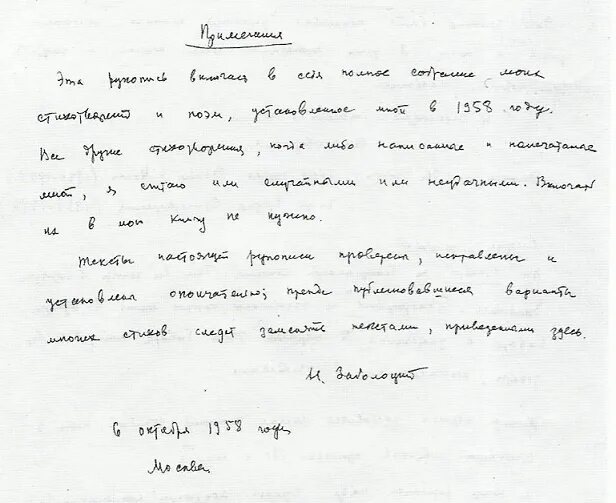 Примечания
Эта рукопись включает в себя полное собрание моих
стихотворений и поэм, установленное мной в 1958 году.
Все другие стихотворения, когда либо написанные и напечатанные
мной, я считаю или случайными или неудачными. Включать
их в мою книгу не нужно.
Тексты настоящей рукописи проверены, исправлены и
установлены окончательно; прежде публиковавшиеся варианты
многих стихов следует заменять текстами, приведенными здесь.
Н. Заболоцкий
6 октября 1958 года
Москва